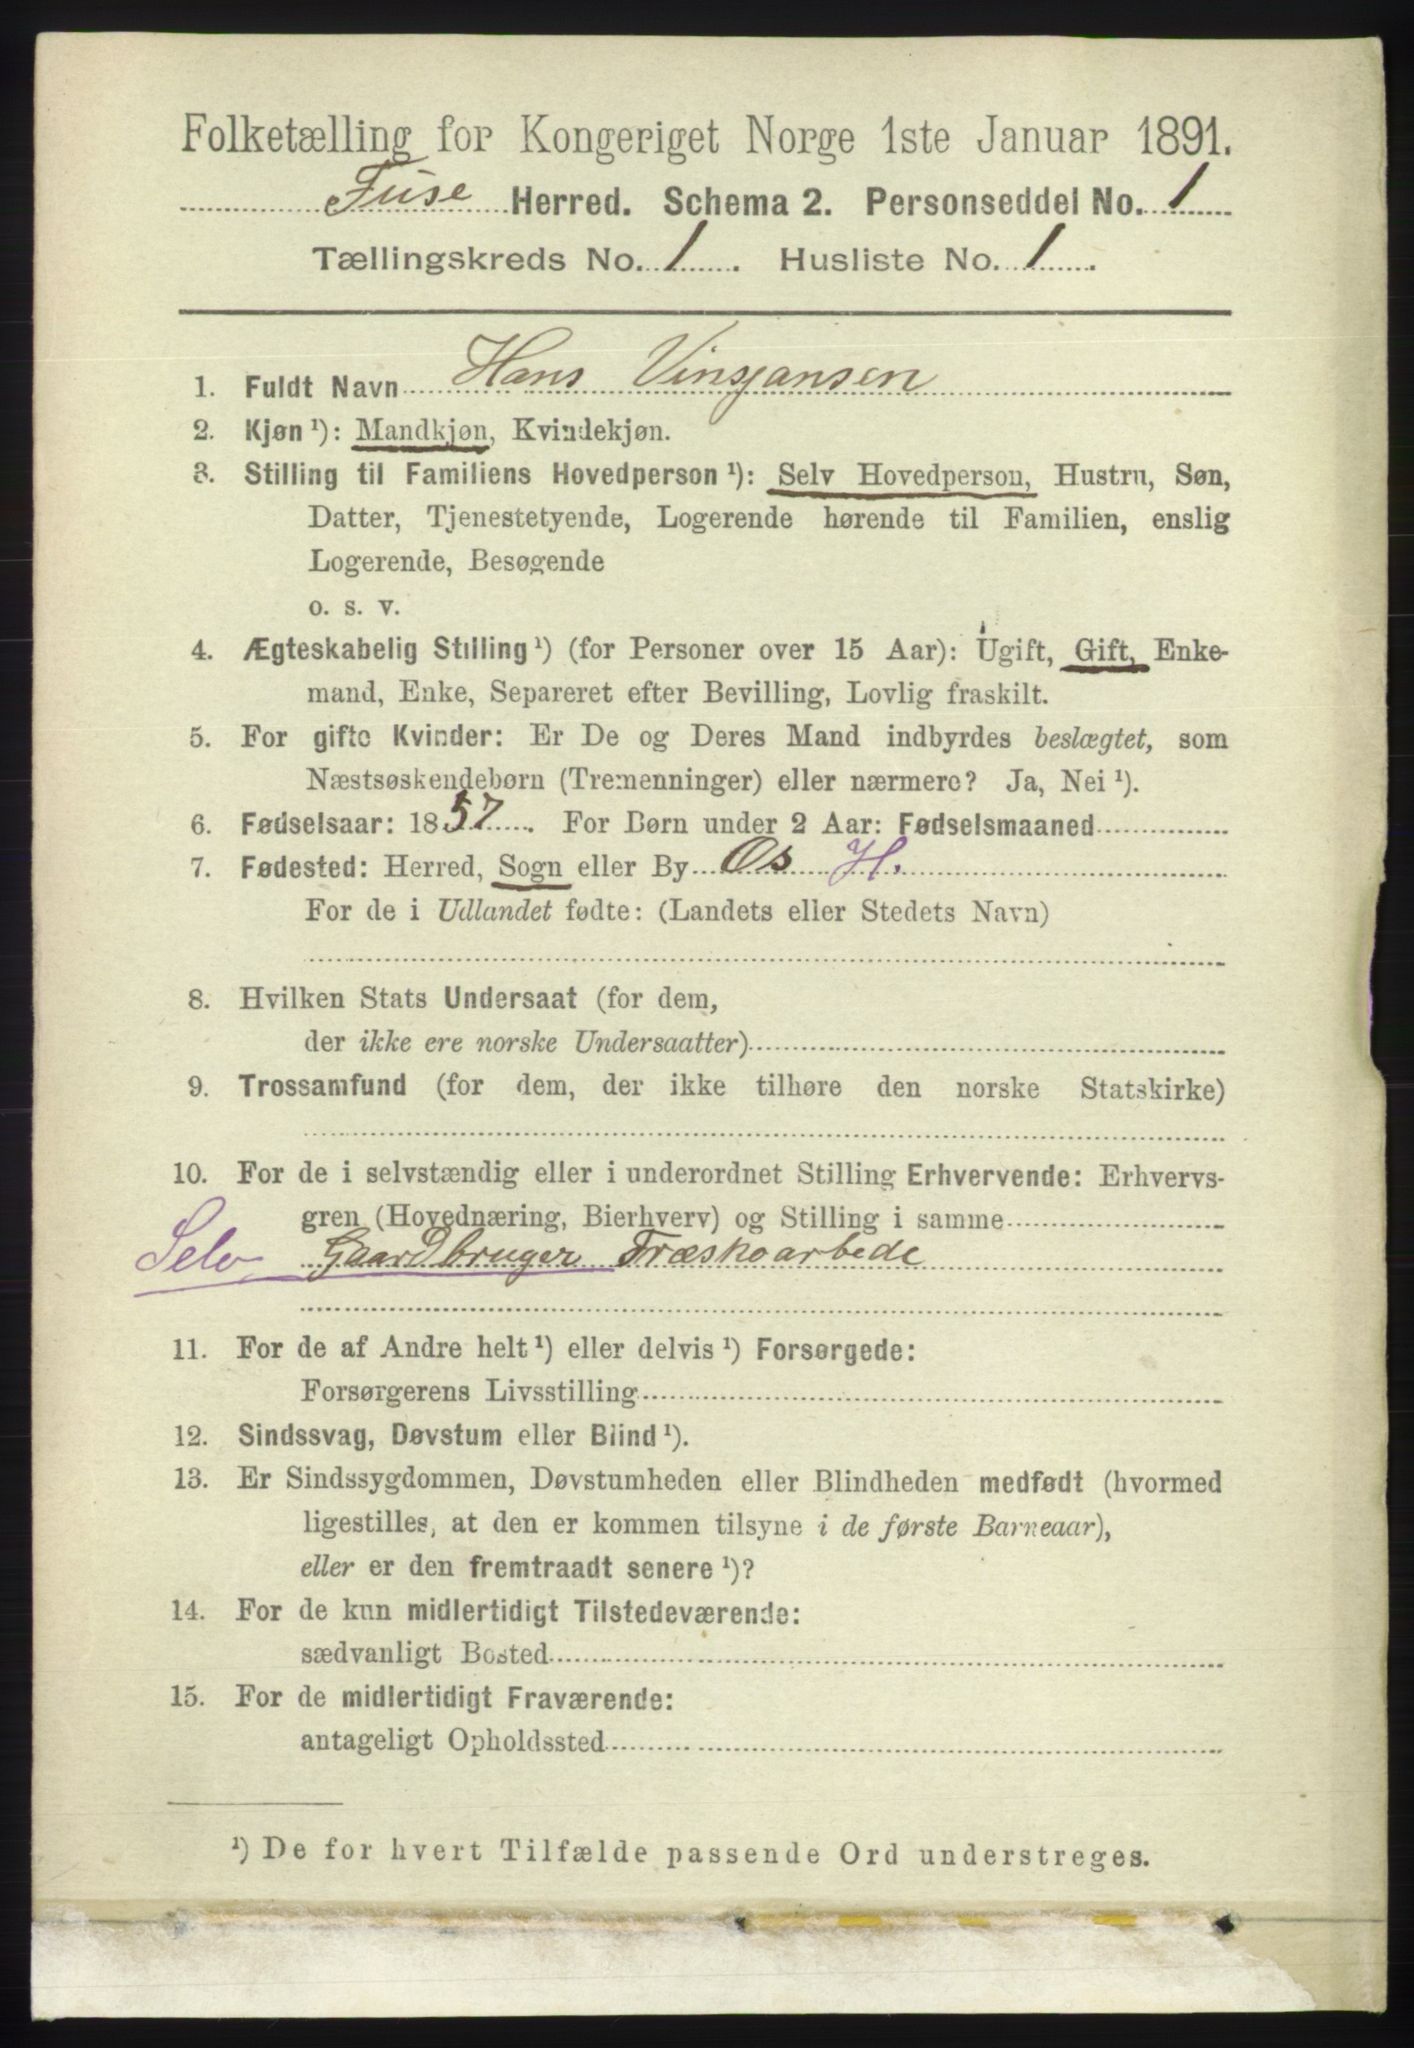 Folketælling for Kongeriget Norge 1ste Januar 1891.
Fuse Herred. Schema 2. Personseddel No. 1
Tællingskreds No. 1. Husliste No. 1.
1. Fuldt Navn Hans Vinsjansen
2. Kjøn ¹): Mandkjøn, Kvindekjøn.
3. Stilling til Familiens Hovedperson ¹): Selv Hovedperson, Hustru, Søn,
Datter, Tjenestetyende, Logerende hørende til Familien, enslig
Logerende, Besøgende
o. s. v.
4. Ægteskabelig Stilling ¹) (for Personer over 15 Aar): Ugift, Gift, Enke-
mand, Enke, Separeret efter Bevilling, Lovlig fraskilt.
5. For gifte Kvinder: Er De og Deres Mand indbyrdes beslægtet, som
Næstsøskendebørn (Tremenninger) eller nærmere? Ja, Nei ¹).
6. Fødselsaar: 1857. For Børn under 2 Aar: Fødselsmaaned
7. Fødested: Herred, Sogn eller By Os H.
For de i Udlandet fødte: (Landets eller Stedets Navn)
8. Hvilken Stats Undersaat (for dem,
der ikke ere norske Undersaatter)
9. Trossamfund (for dem, der ikke tilhøre den norske Statskirke)
10. For de i selvstændig eller i underordnet Stilling Erhvervende: Erhvervs-
gren (Hovednæring, Bierhverv) og Stilling i samme
Selv Gaardbruger Træskoarbede
11. For de af Andre helt ¹) eller delvis ¹) Forsørgede:
Forsørgerens Livsstilling
12. Sindssvag, Døvstum eller Blind ¹).
13. Er Sindssygdommen, Døvstumheden eller Blindheden medfødt (hvormed
ligestilles, at den er kommen tilsyne i de første Barneaar),
eller er den fremtraadt senere ¹)?
14. For de kun midlertidigt Tilstedeværende:
sædvanligt Bosted
15. For de midlertidigt Fraværende:
antageligt Opholdssted
¹) De for hvert Tilfælde passende Ord understreges.